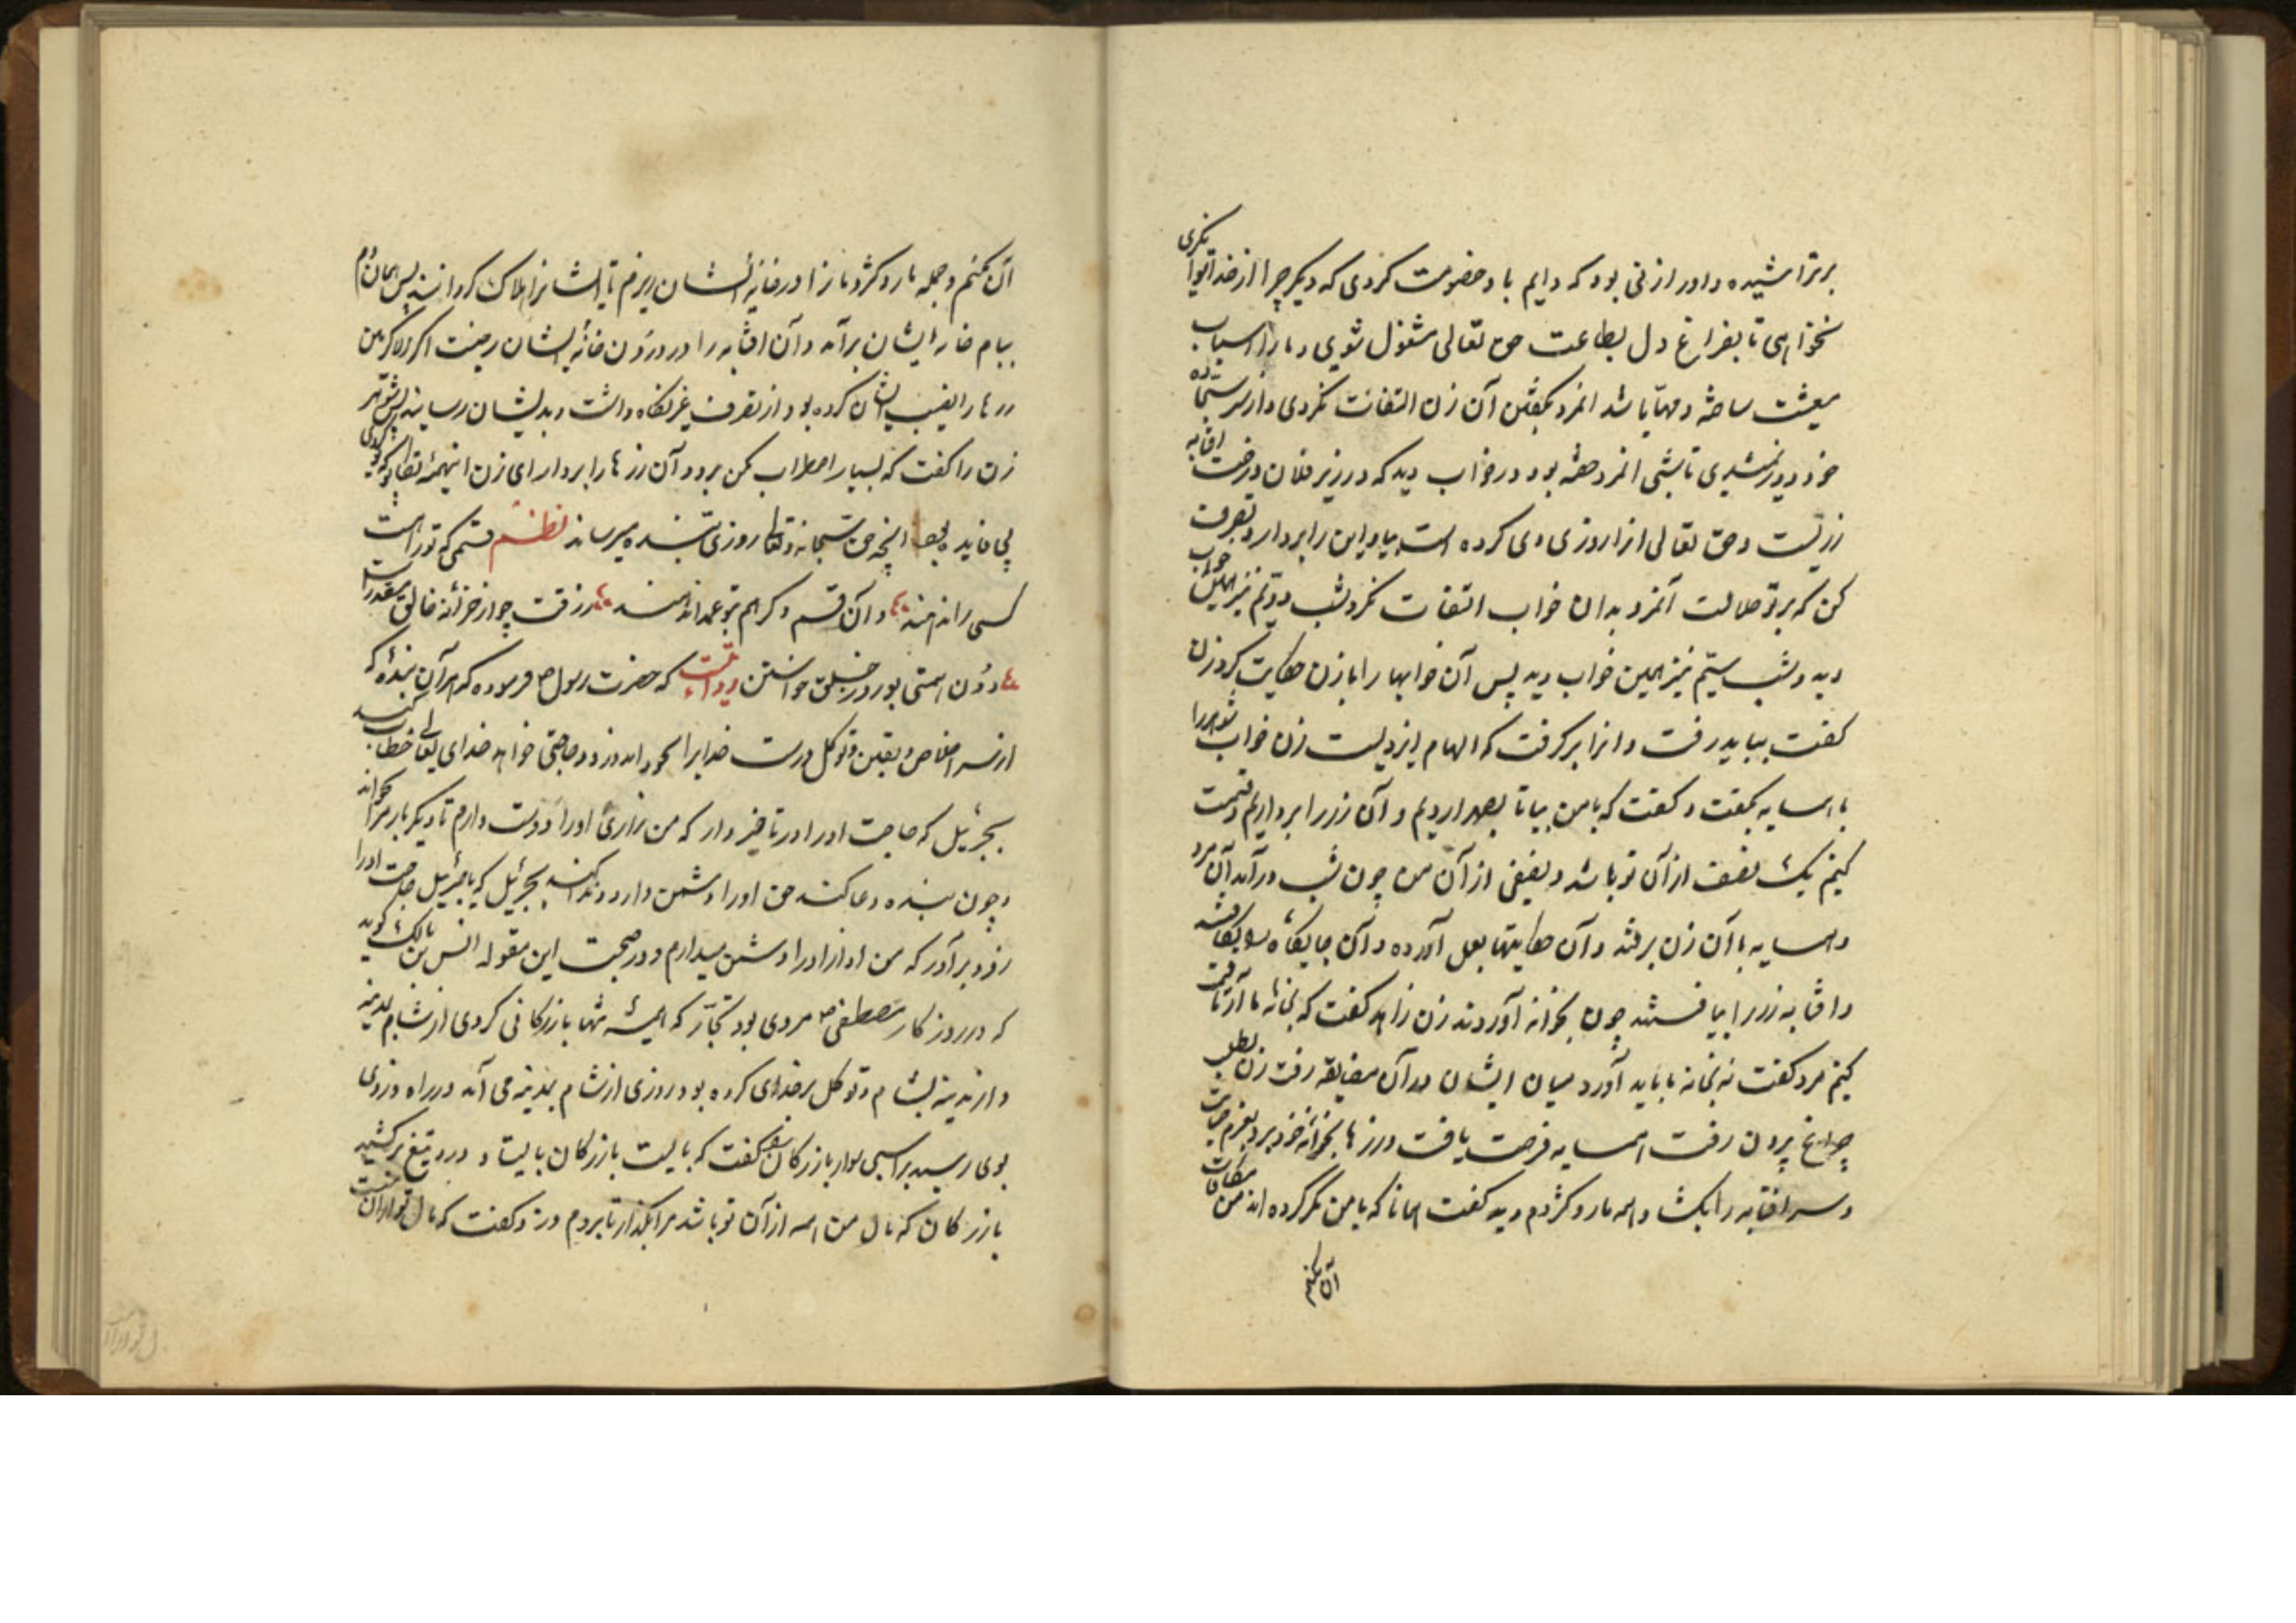 برتراشیده و اورا زنی بود که دایم با او خصومت کردی که دیگر چرا از خدا توانگری
نخواهی تا بفراغ دل بطاعت حق تعالی مشغول شوی و ما را اسباب
معیشت ساخته و مهیا باشد انمرد بگفتن آن زن التفات نکردی و از سر سجاده
خود دور نشدی تا شبی انمرد خفته بود در خواب دید که در زیر فلان درخت افتابه
زریست و حق تعالی انرا روزی وی کرده است بیا و این را بردار و تصرف
کن که بر تو حلالست آنمرد بدان خواب التفات نکرد شب دویم نیز همین خواب
دید و شب سیم نیز همین خواب دید پس آن خوابها را با زن حکایت کرد زن
کفت بباید رفت و انرا برکرفت که الهام ایزدیست زن خواب شوهر را
با همسایه بگفت و کفت که با من بیا تا بصحرا رویم و آن زر را برداریم و قسمت
کنیم یک نصف از آن تو باشد و نصفی از آن من چون شب درآمد آن مرد
و همسایه با آن زن برفتند و آن حکایتها بعمل آورده و آن جایگاه بکافتند
و افتابه زر را بیافتند چون بخانه آوردند زن زاهد کفت که بخانه ما آر تا قسمت
کنیم مرد کفت نه بخانه ما باید آورد میان ایشان در آن مضایقه رفت زن بطلب
چراغ بیرون رفت همسایه فرصت یافت و زرها بخانه خود برد بعزم خیانت
و سر افتابه را بگشاد همه مار و کژدم دید کفت همانا که با من مکر کرده اند من مکافات
آن بکنم
آن بکنم و جمله مار و کژدمانرا در خانه ایشان ریزم تا ایشانرا هلاک کرداند پس همان دم
ببام خانه ایشان برآمد و آن افتابه را در درون خانه ایشان ریخت اکرم الاکرمین
زرها را نصیب ایشان کرده بود از تصرف غیر نگاه داشت و بدیشان رسانید پس شوهر
زن را کفت که بسیار اضطراب مکن برو و آن زرها را بردار ای زن اینهمه تکاپوی که کردی
بی فایده بود انچه حق سبحانه و تعالی روزی بنده میرساند نظم قسمی که تو راست
کسی را ندهند و آن قسم دگر هم بتو عمدا ندهند رزقت چو از خزانه خالق مقدر است
دون همتی بود در خلق خواستن روایت که حضرت رسول ص فرموده که هر آن بنده که
از سر اخلاص و یقین و توکل درست خدایرا بخواند و زو حاجتی خواهد خدای تعالی خطاب کند
بجبرئیل که حاجت او را در تاخیر دار که من زاری او را دوست دارم تا دیگر بار مرا بخواند
و چون بنده دعا کند حق او را دشمن دارد و ندا کند بجبرئیل که یا جبرئیل حاجت او را
زود برآور که من آواز او را دشمن میدارم و در صحبت این مقوله انس بن مالک گوید
که در روزگار مصطفی ص مردی بود تجّار که همیشه تنها بازرگانی کردی از شام بمدینه
و از مدینه بشام و توکل بر خدای کرده بود روزی از شام بمدینه می آمد در راه دزدی
بوی رسید بر اسبی سوار بازرگان را کفت که بایست بازرگان بایستاد و دزد تیغ برکشید
بازرگان که مال من همه از آن تو باشد مرا بگذار تا بروم دزد کفت که مال تو از آن